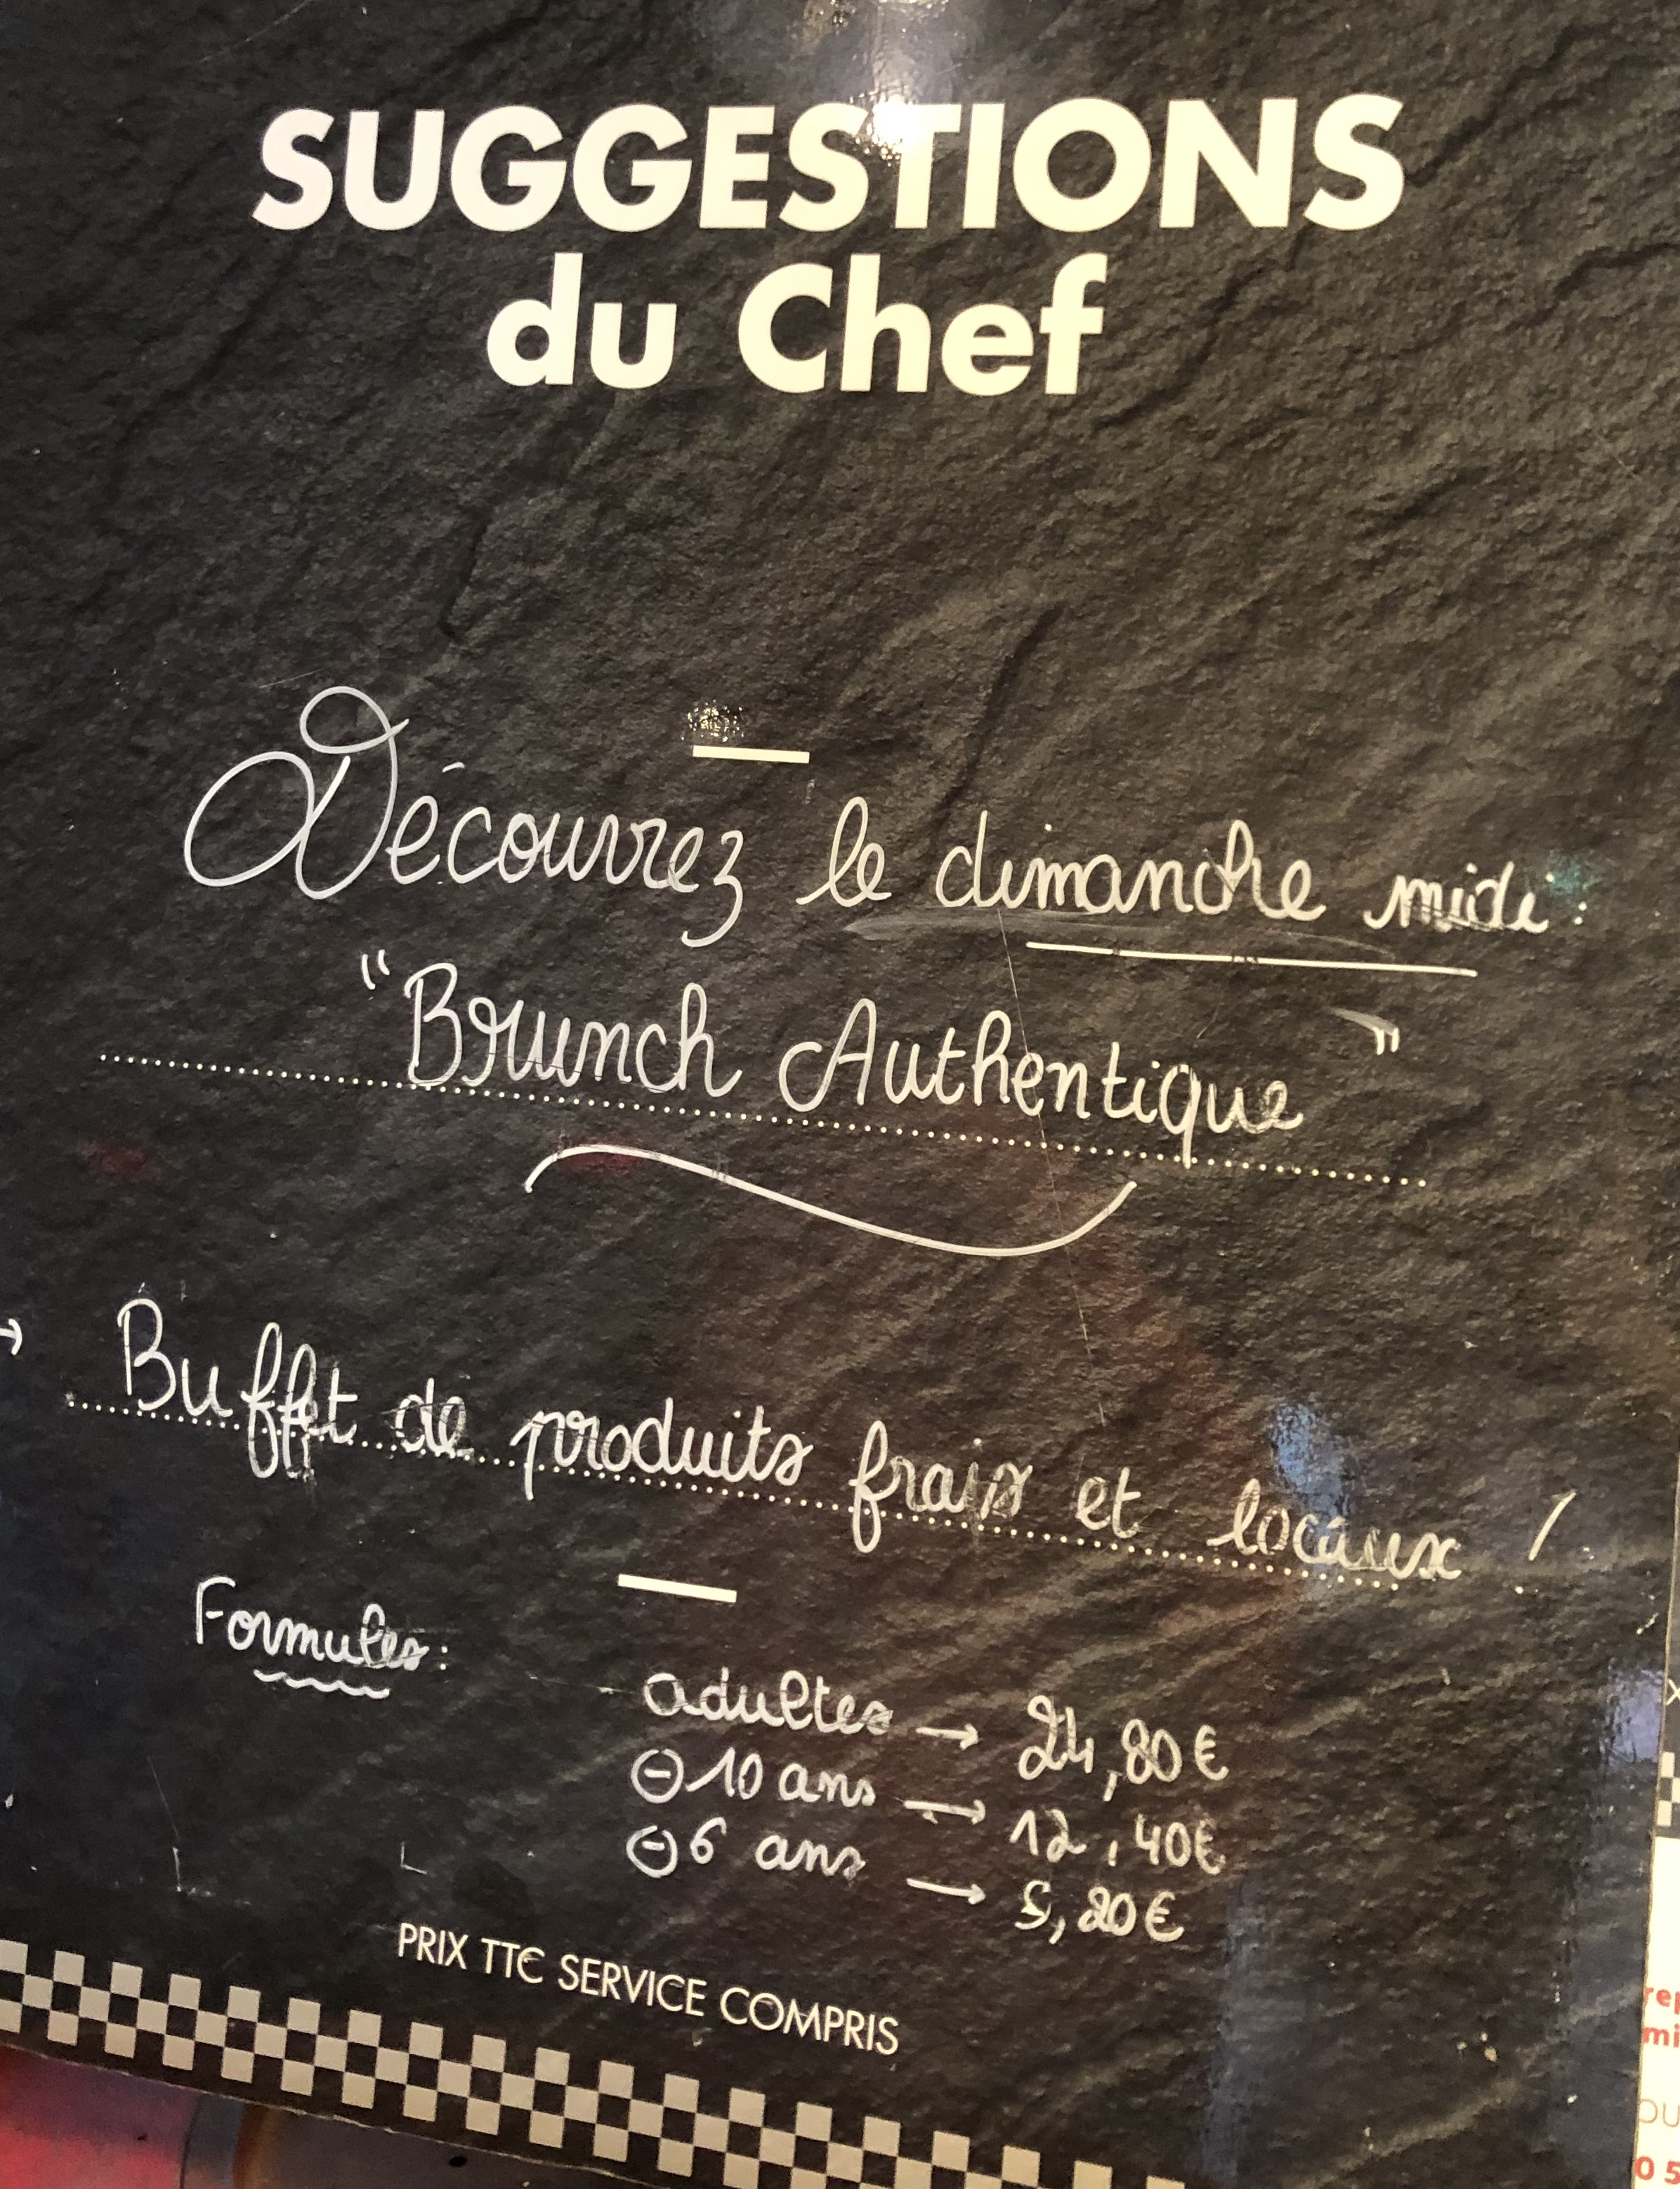 SUGGESTIONS
du Chef
Découvrez le dimanche midi :
"Brunch Authentique"
→ Buffet de produits frais et locaux !
Formules :
adultes → 24,80€
⊖ 10 ans → 12,40€
⊖ 6 ans → 5,20€
PRIX TTC SERVICE COMPRIS